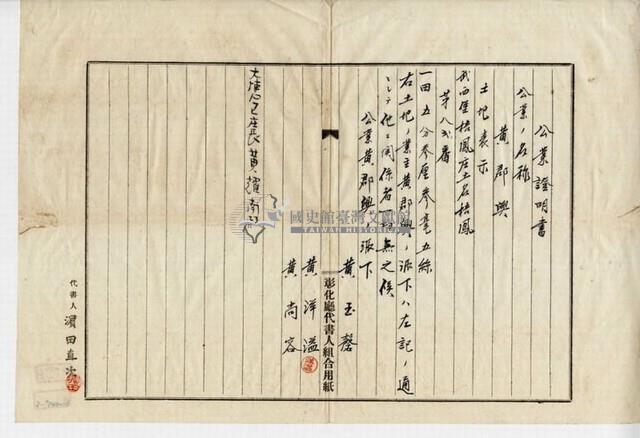 公業證明書
公業ノ名称
黄郡興
土地表示
武西堡梧鳳庄土名梧鳳
第八弍番
一田五分参厘参毫五絲
右土地ノ業主黄郡興ノ派下ハ左記ノ通
ニシテ他ニ関係者一切無之候
公業黄郡興派下
黄玉磬
黄洋溢
黄尚容
彰化廳代書人組合用紙
區庄長黄耀南
代書人 濵田直次
國史館臺灣文獻館
TAIWAN HISTORICA